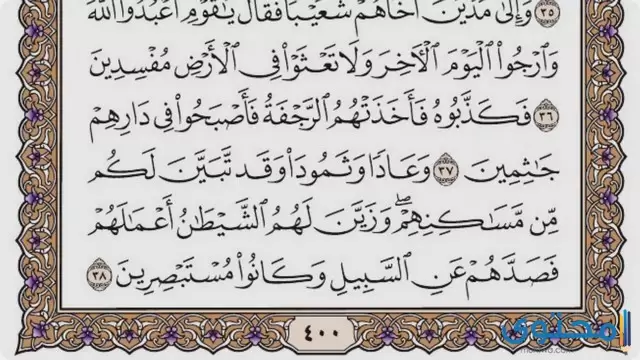 ﴿٣٥﴾ وَإِلَىٰ مَدْيَنَ أَخَاهُمْ شُعَيْبًا فَقَالَ يَٰقَوْمِ ٱعْبُدُوا۟ ٱللَّهَ
وَٱرْجُوا۟ ٱلْيَوْمَ ٱلْءَاخِرَ وَلَا تَعْثَوْا۟ فِى ٱلْأَرْضِ مُفْسِدِينَ
﴿٣٦﴾ فَكَذَّبُوهُ فَأَخَذَتْهُمُ ٱلرَّجْفَةُ فَأَصْبَحُوا۟ فِى دَارِهِمْ
جَٰثِمِينَ ﴿٣٧﴾ وَعَادًا وَثَمُودَا۟ وَقَد تَّبَيَّنَ لَكُم
مِّن مَّسَٰكِنِهِمْ ۖ وَزَيَّنَ لَهُمُ ٱلشَّيْطَٰنُ أَعْمَٰلَهُمْ
فَصَدَّهُمْ عَنِ ٱلسَّبِيلِ وَكَانُوا۟ مُسْتَبْصِرِينَ ﴿٣٨﴾
٤٠٠
محتوى